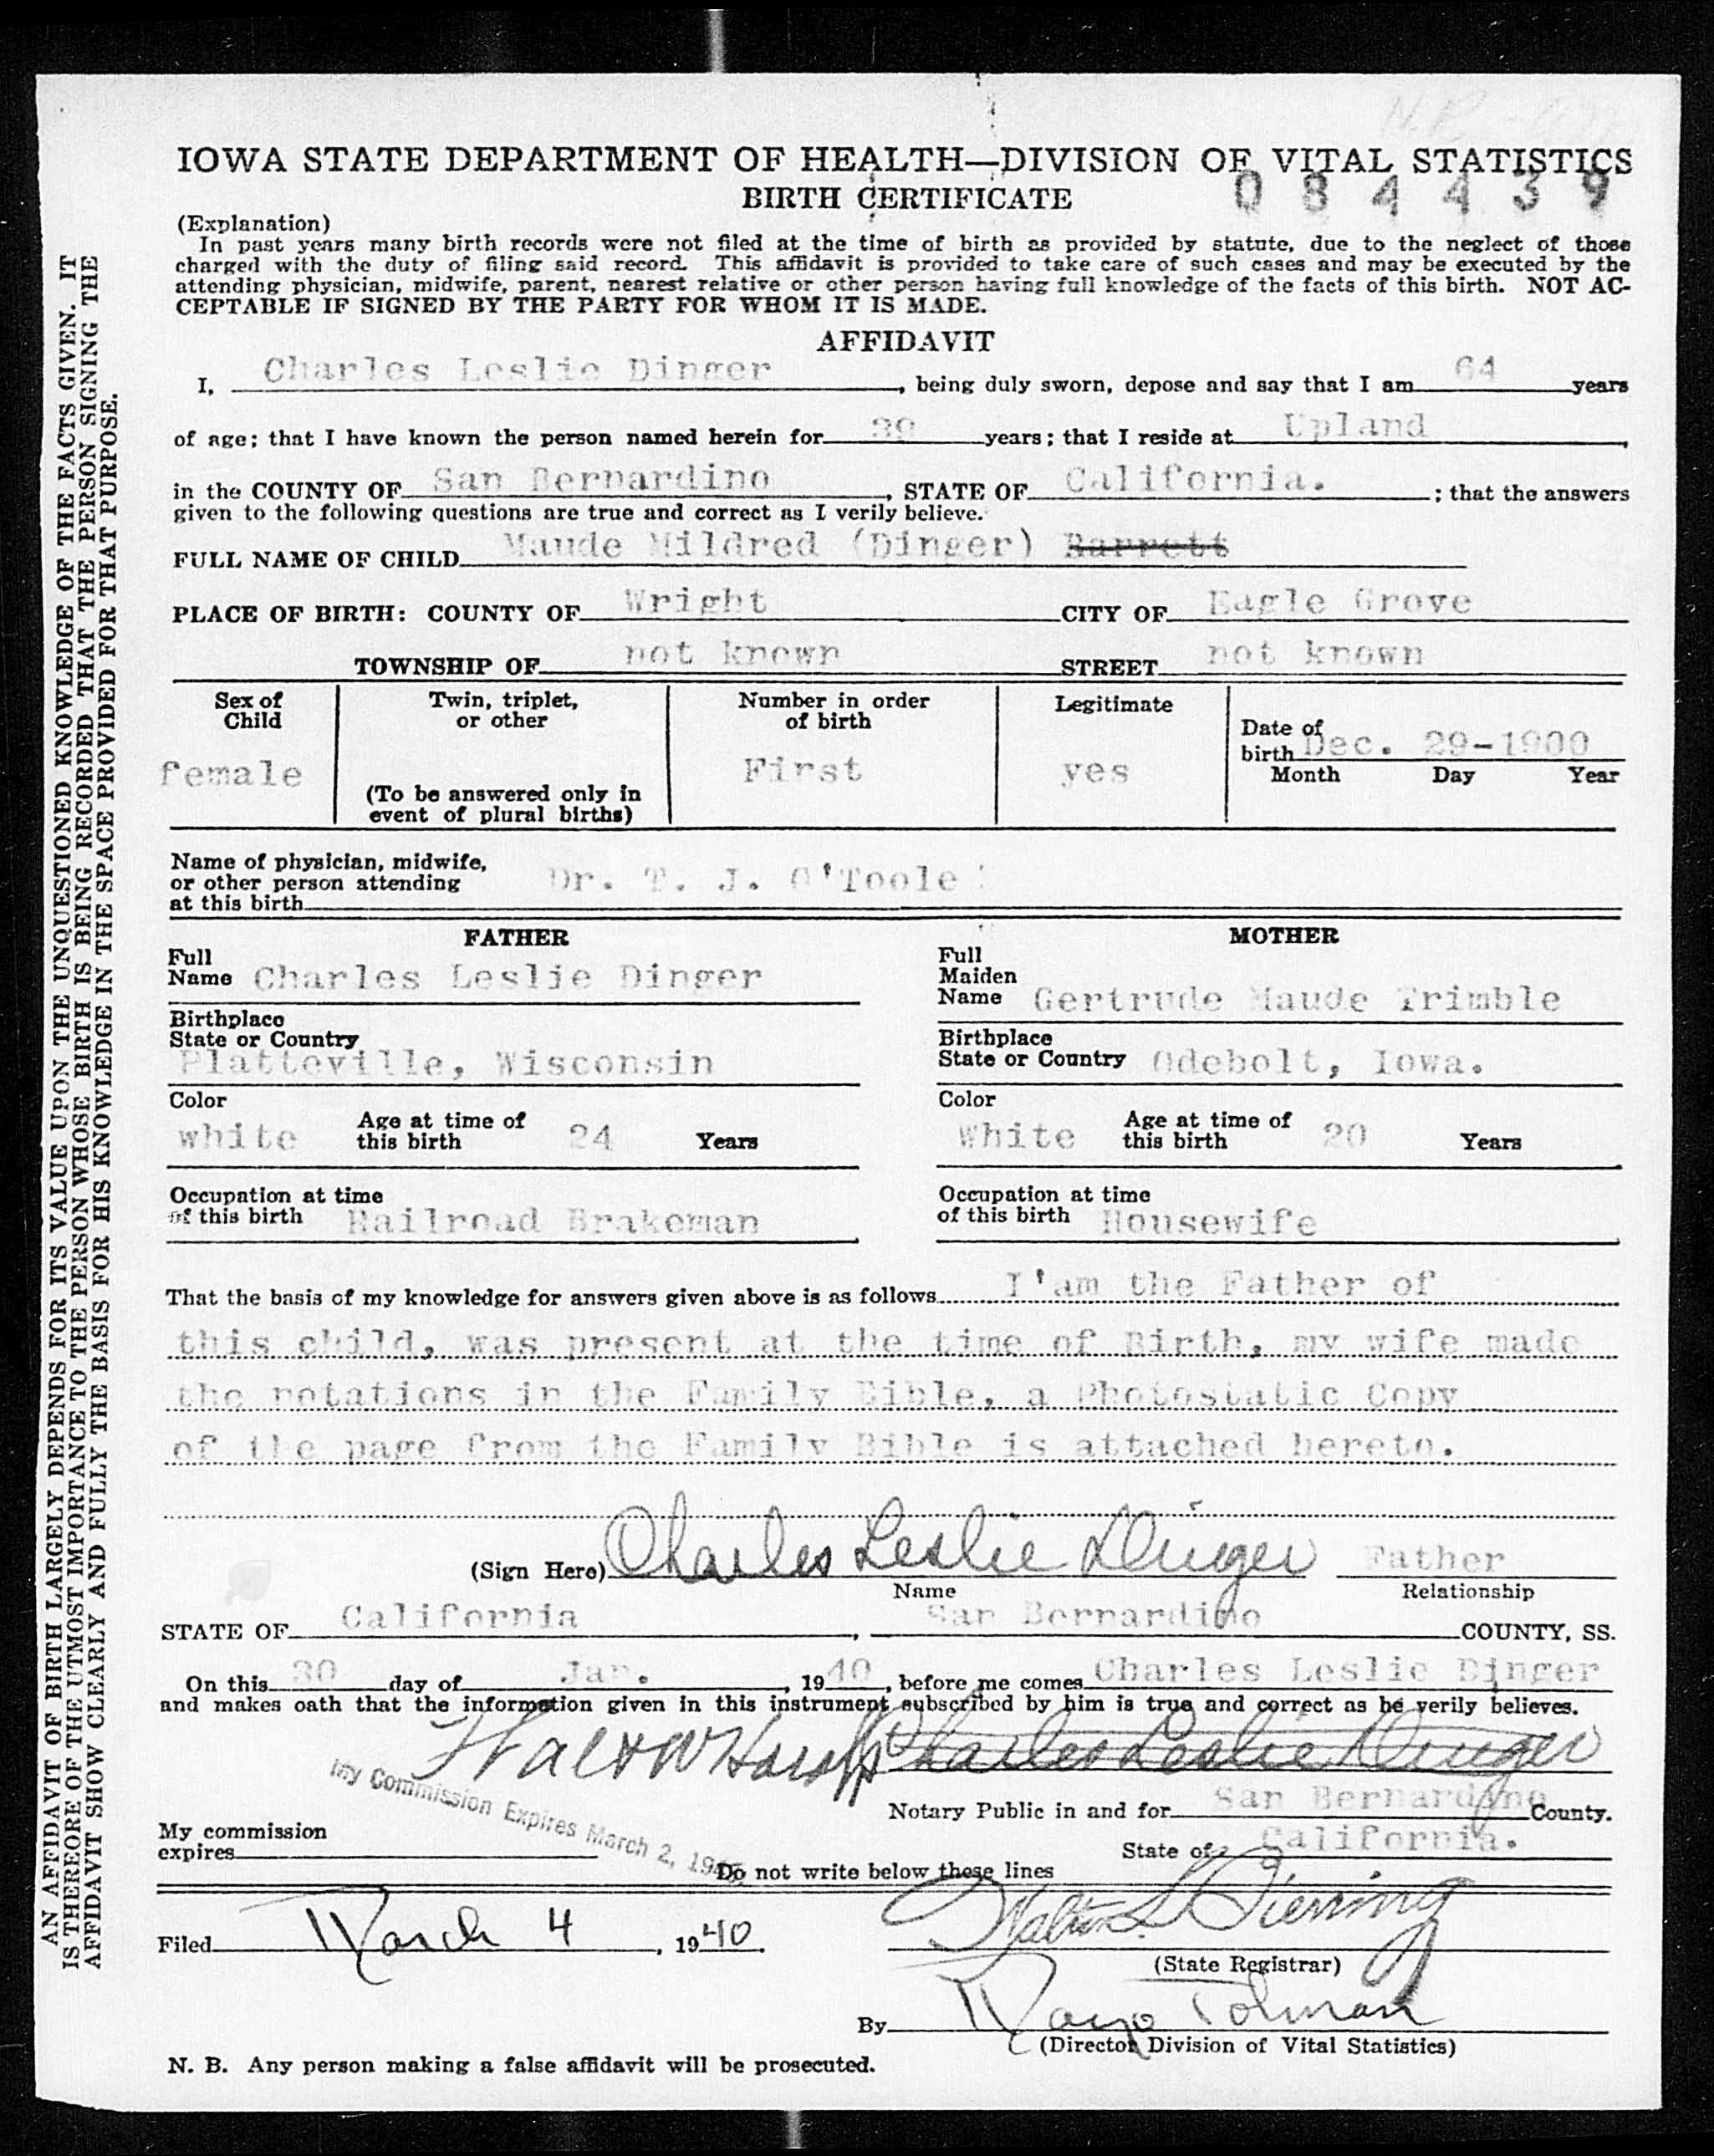 IOWA STATE DEPARTMENT OF HEALTH—DIVISION OF VITAL STATISTICS
BIRTH CERTIFICATE
084439
(Explanation)
In past years many birth records were not filed at the time of birth as provided by statute, due to the neglect of those
charged with the duty of filing said record. This affidavit is provided to take care of such cases and may be executed by the
attending physician, midwife, parent, nearest relative or other person having full knowledge of the facts of this birth. NOT AC-
CEPTABLE IF SIGNED BY THE PARTY FOR WHOM IT IS MADE.
AFFIDAVIT
I, Charles Leslie Dinger, being duly sworn, depose and say that I am 64 years
of age; that I have known the person named herein for 39 years; that I reside at Upland,
in the COUNTY OF San Bernardino, STATE OF California. ; that the answers
given to the following questions are true and correct as I verily believe.
FULL NAME OF CHILD Maude Mildred (Dinger) Barrett
PLACE OF BIRTH: COUNTY OF Wright CITY OF Eagle Grove
TOWNSHIP OF not known STREET not known
Sex of Child female
Twin, triplet, or other
(To be answered only in event of plural births)
Number in order of birth First
Legitimate yes
Date of birth Dec. 29-1900
Month Day Year
Name of physician, midwife,
or other person attending Dr. T. J. O'Toole
at this birth
FATHER
Full
Name Charles Leslie Dinger
Birthplace
State or Country
Platteville, Wisconsin
Color
white Age at time of this birth 24 Years
Occupation at time
of this birth Railroad Brakeman
MOTHER
Full
Maiden
Name Gertrude Maude Trimble
Birthplace
State or Country Odebolt, Iowa.
Color
White Age at time of this birth 20 Years
Occupation at time
of this birth Housewife
That the basis of my knowledge for answers given above is as follows I'am the Father of
this child, was present at the time of Birth, my wife made
the notations in the Family Bible, a Photostatic Copy
of the page from the Family Bible is attached hereto.
(Sign Here) Charles Leslie Dinger Father
Name Relationship
STATE OF California, San Bernardino COUNTY, SS.
On this 30 day of Jan., 1940, before me comes Charles Leslie Dinger
and makes oath that the information given in this instrument subscribed by him is true and correct as he verily believes.
Charles Leslie Dinger
My Commission Expires March 2, 19
Notary Public in and for San Bernardino County.
My commission
expires
State of California.
Do not write below these lines
Filed March 4, 1940.
Walter L Bierring
(State Registrar)
By Mayo Tolman
(Director Division of Vital Statistics)
N. B. Any person making a false affidavit will be prosecuted.
AN AFFIDAVIT OF BIRTH LARGELY DEPENDS FOR ITS VALUE UPON THE UNQUESTIONED KNOWLEDGE OF THE FACTS GIVEN. IT
IS THEREFORE OF THE UTMOST IMPORTANCE TO THE PERSON WHOSE BIRTH IS BEING RECORDED THAT THE PERSON SIGNING THE
AFFIDAVIT SHOW CLEARLY AND FULLY THE BASIS FOR HIS KNOWLEDGE IN THE SPACE PROVIDED FOR THAT PURPOSE.